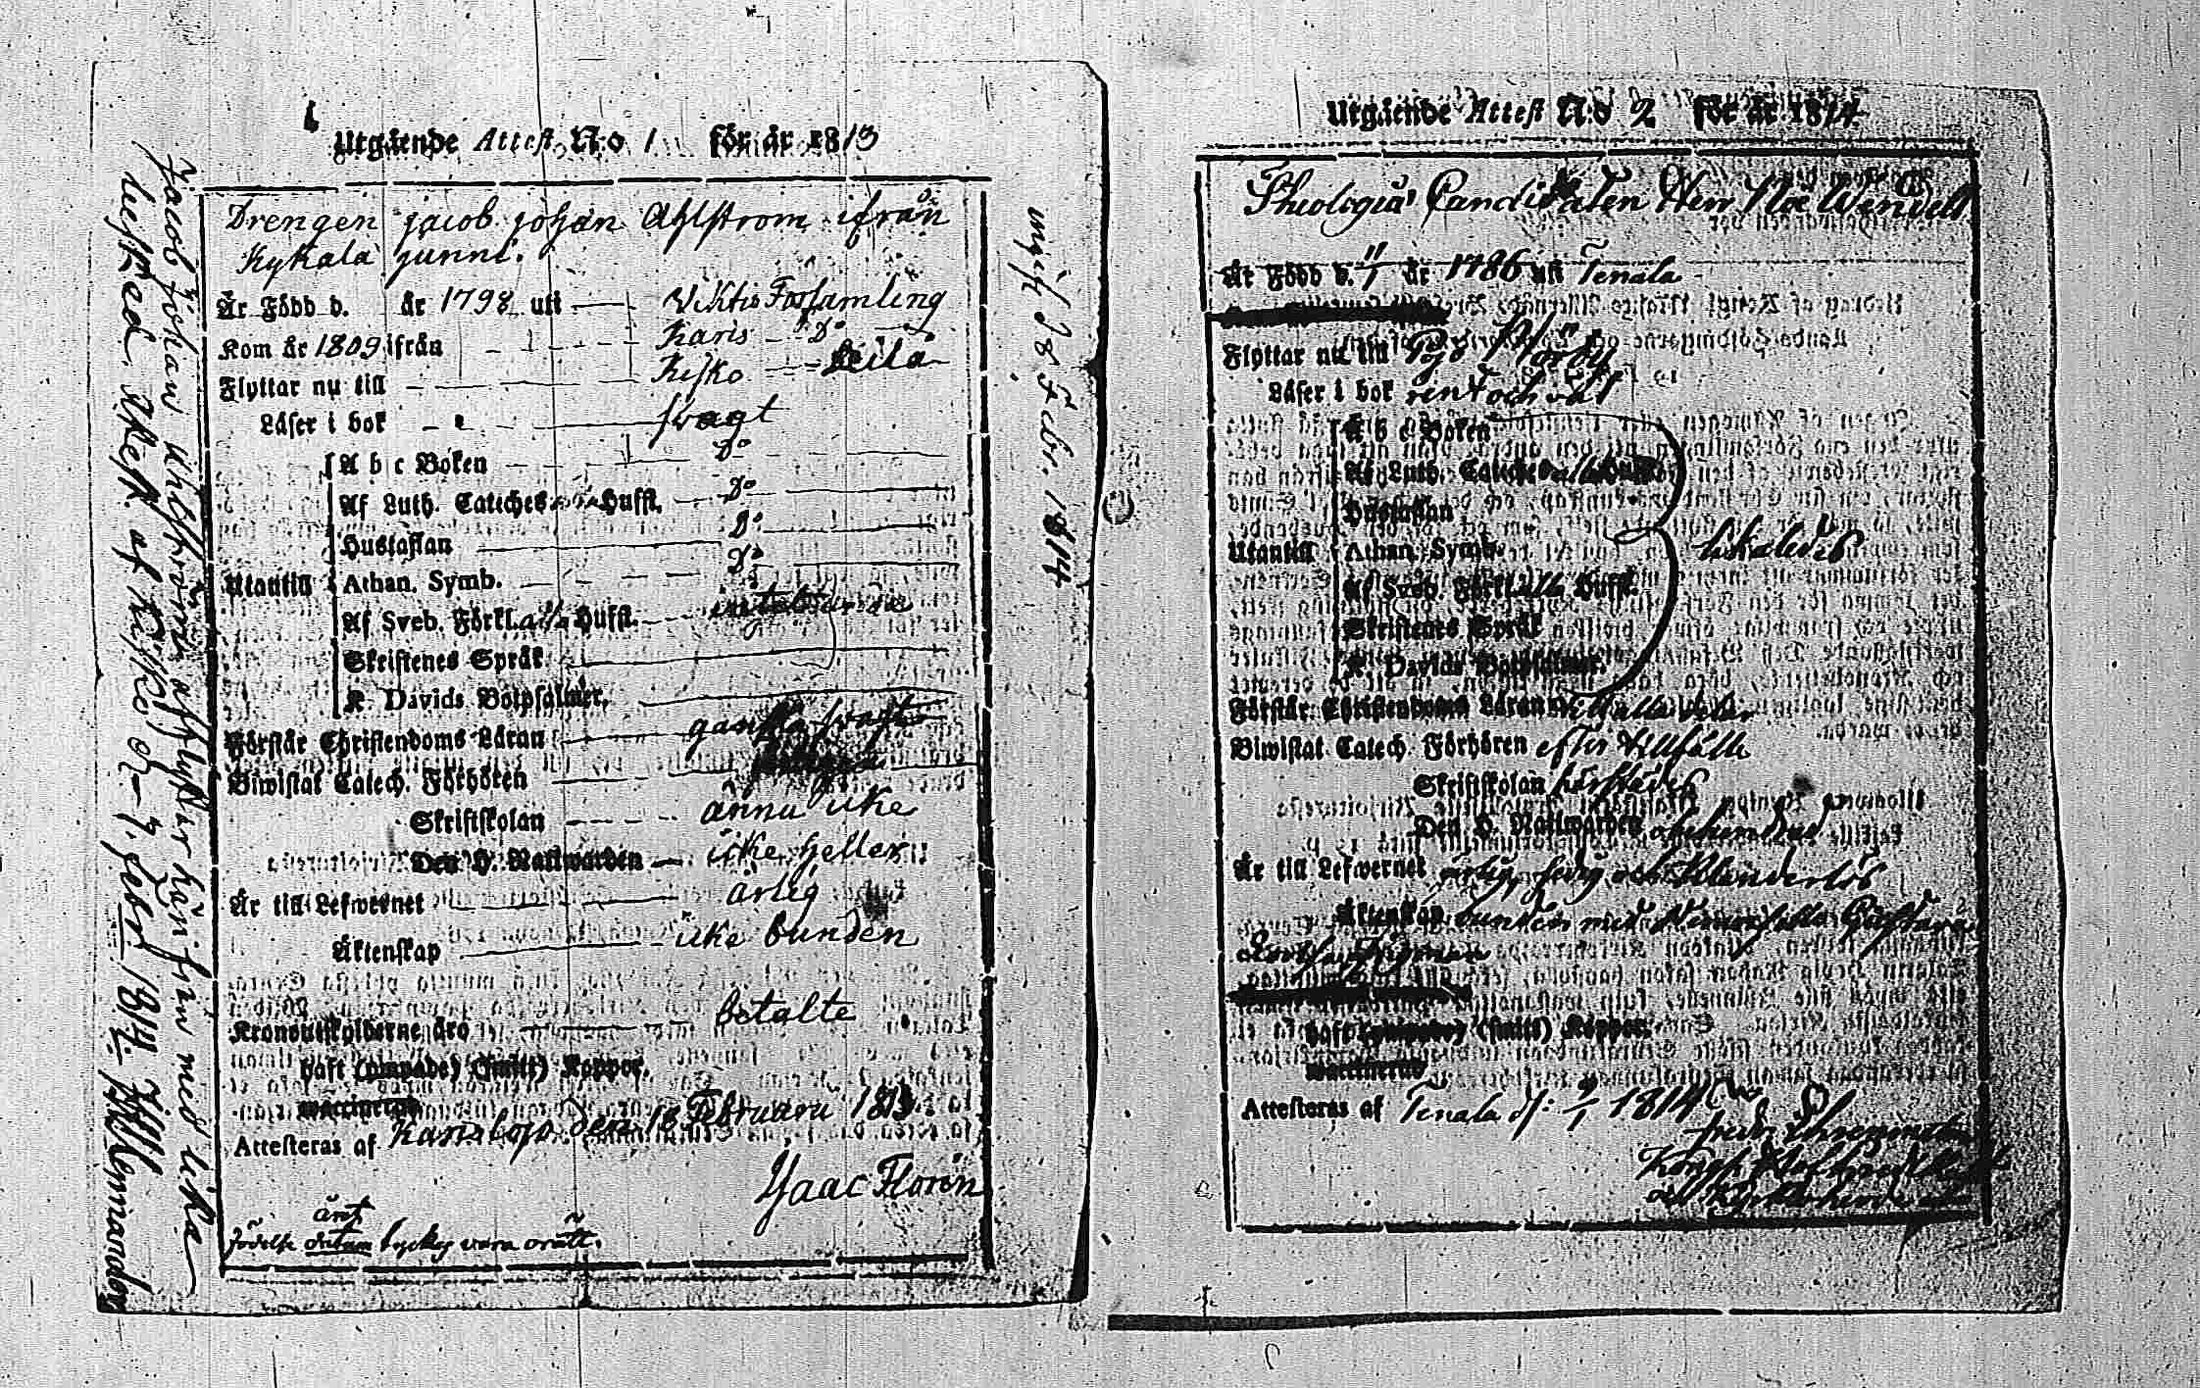 Utgående Attest N:o 1 för år 1813
Drengen Jacob Johan Ahlstrom ifrån
Kykala junni.
Är Född d. år 1798 uti Viktis Församling
Kom år 1809 ifrån Karis Do
Flyttar nu till Kisko Leilä
Läser i bok svagt
A b c Boken Do
Af Luth. Cateches alla Hufst. Do
Hustaflan Do
Utantill Athan. Symb. Do
Af Sveb. Förkl. alla Hufst.
Skriftenes Språk
K. Davids Botpsalmer.
Förstår Christendoms Läran ganska svagt
Biwistat Catech. Förhören
Skriftskolan ännu icke
Den H. Nattwarden icke heller
Är till Lefwernet ärlig
Äktenskap icke bunden
Kronoutskylderne äro betalte
haft (ympade) (smitt) Koppor.
waccinerad
Attesteras af Karislojo den 18 Februarii 1813
Isaac Florin
året
födelse datum tyckes vara orätt.
Jacob Johan Ahlström afflyttar här ifrån med lika
besked. Attest. af Kisko d. 7. Febr. 1814.
upvist d 8 Febr. 1814
Utgående Attest N:o 2 för år 1814
Theologiæ Candidaten Herr Noë Wendell
Är Född d. 11/1 år 1786 uti Tenala
Flyttar nu till Pojo
Läser i bok rent och väl
A b c Boken
Af Luth. Cateches alla Hufst.
Hustaflan
Utantill Athan. Symb. likaledes
Af Sveb. Förkl. alla Hufst.
Skriftenes Språk
K. Davids Botpsalmer.
Förstår Christendoms Läran till alla delar
Biwistat Catech. Förhören efter tillfälle
Skriftskolan härstädes
Den H. Nattwarden obehindrad
Är till Lefwernet ärlig, sedig och klanderlös
Äktenskap bunden med Demoiselle Gustava
haft (ympade) (smitt) Koppor.
waccinerad
Attesteras af Tenala d: 9/1 1814